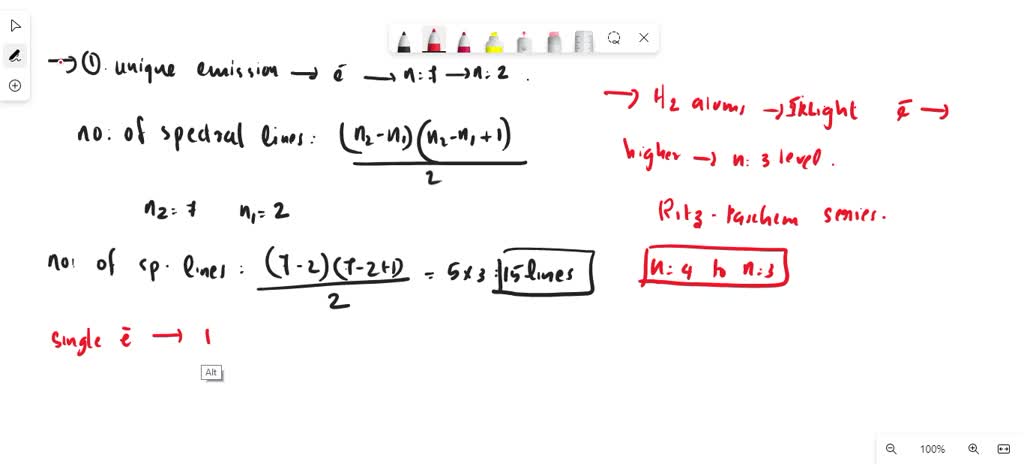 → ① . unique emission → ē → n: 7 → n: 2 .
no: of spectral lines : (n₂-n₁) (n₂-n₁+1) / 2
n₂ = 7 n₁ = 2
no: of sp. lines : (7-2)(7-2+1) / 2 = 5 x 3 : 15 lines
single ē → 1
Alt
→ H₂ atoms → light ē →
higher → n: 3 level .
Ritz - Paschem series.
n: 4 to n: 3
100%